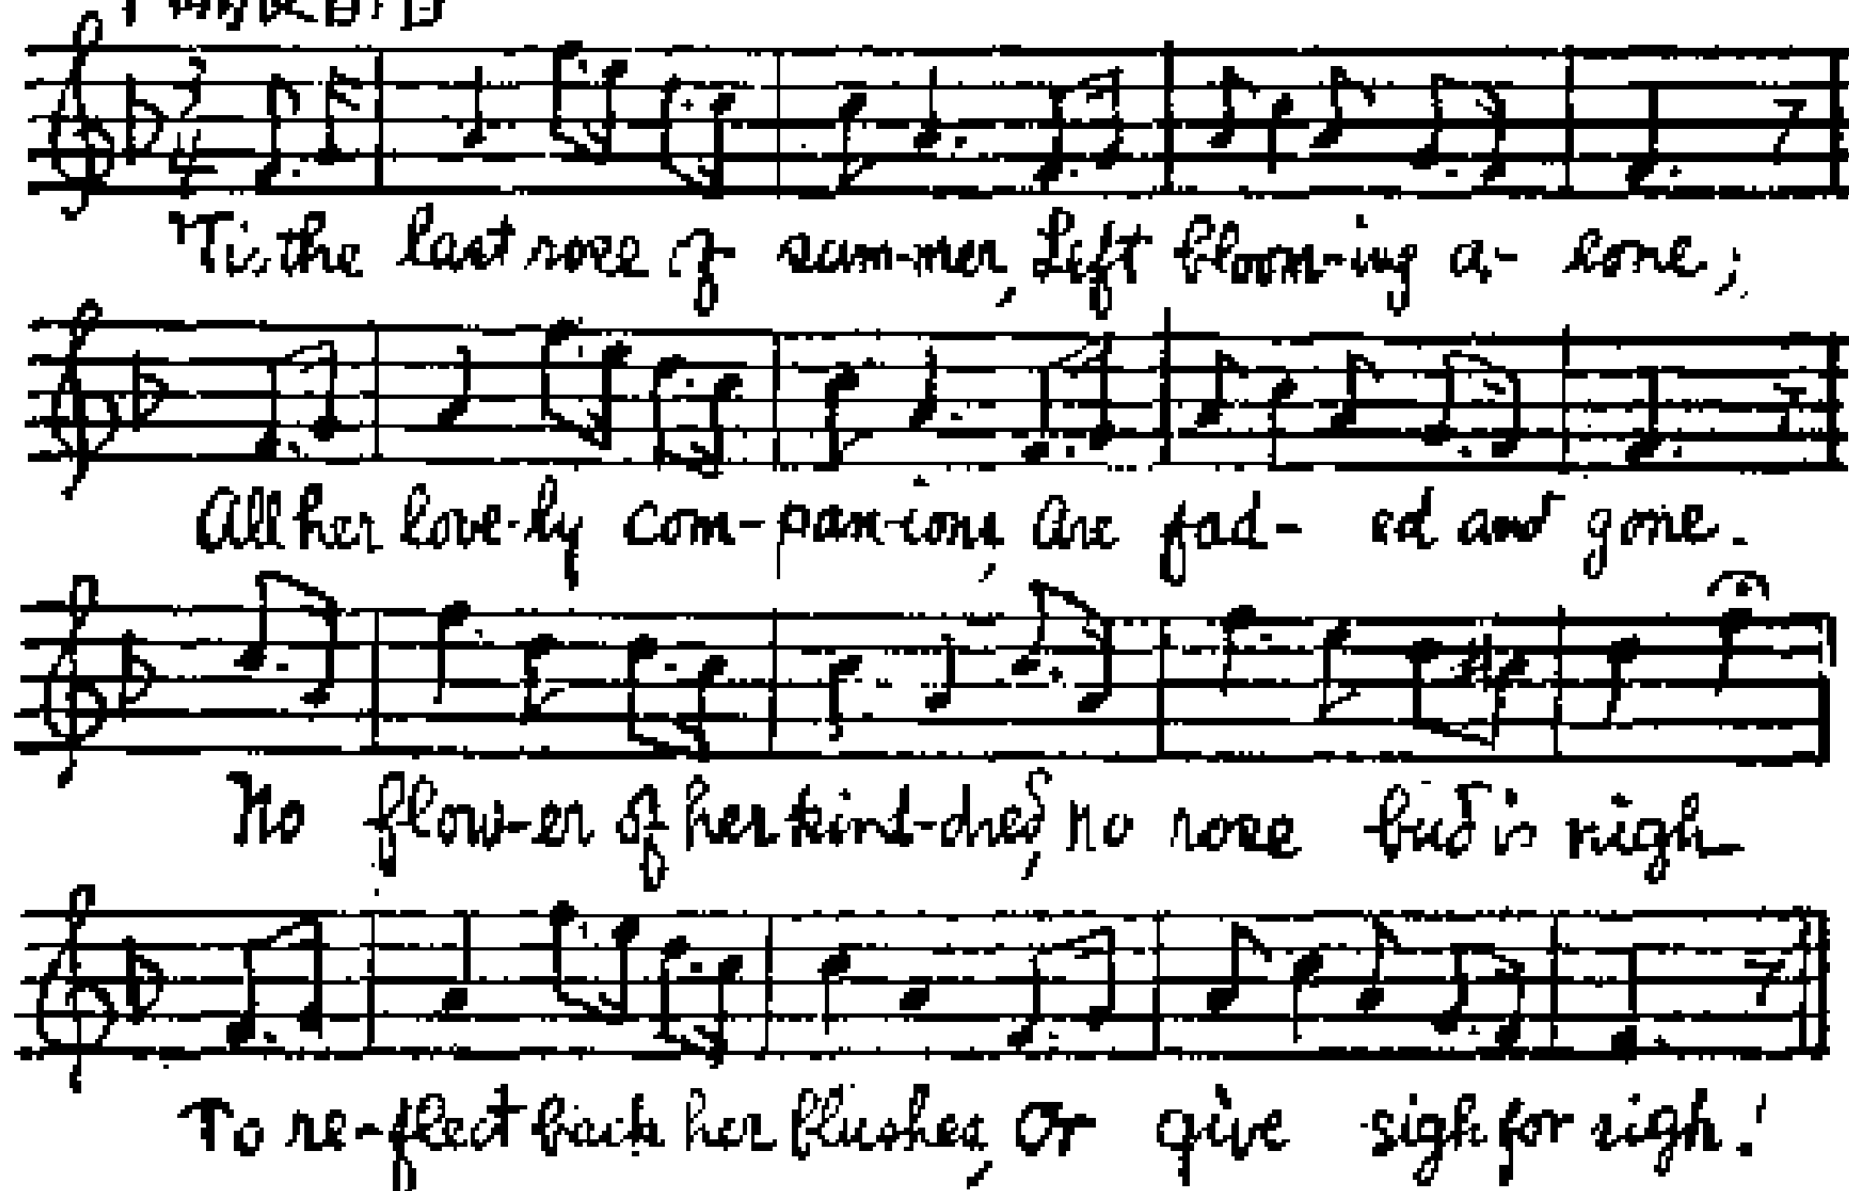 'Tis the last rose of sum-mer, Left bloom-ing a- lone;
All her love-ly com-pan-ions, Are fad- ed and gone.
No flow-er of her kind-dred, no rose bud is nigh
To re-flect back her blushes, Or give sigh for sigh!